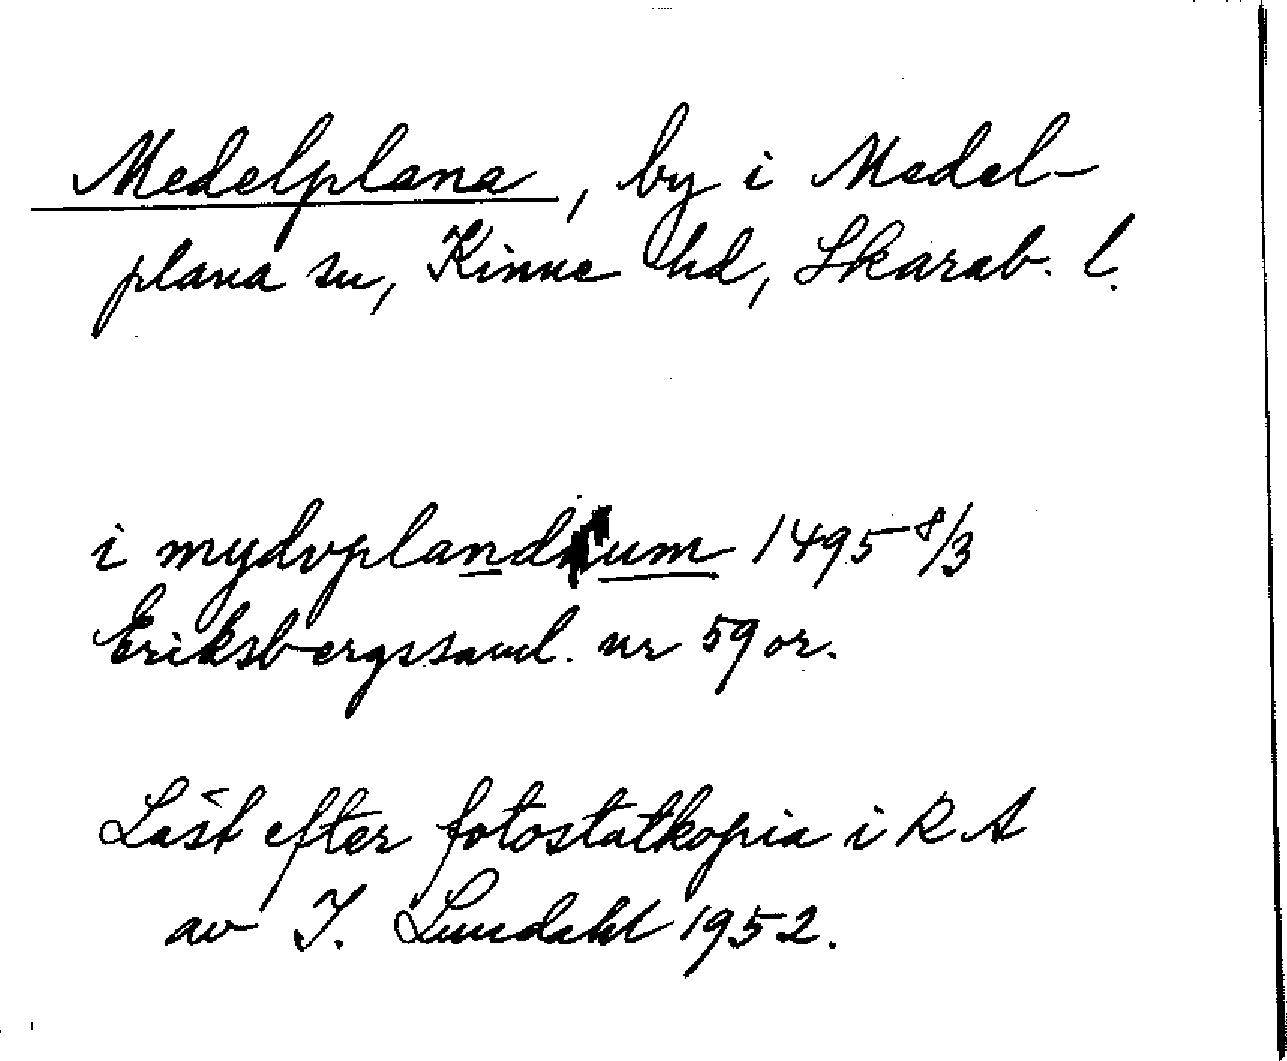 Medelplana, by i Medel-
plana sn, Kinne hd, Skarab. l.
i mydvplandum 1495 8/3
Eriksbergssaml. nr 59 or.
Läst efter fotostatkopia i RA
av I. Lundahl 1952.